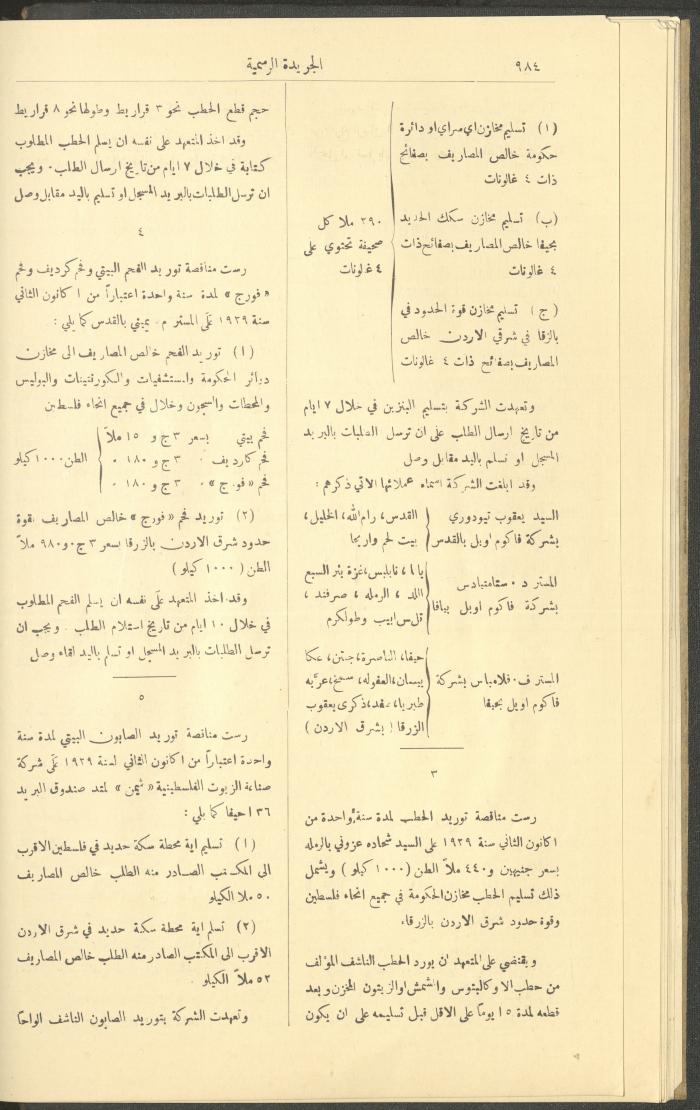 ٩٨٤
الجريدة الرسمية
(١) تسليم مخازن اي سراي او دائرة
حكومة خالص المصاريف بصفائح
ذات ٤ غالونات
(ب) تسليم مخازن سكك الحديد
بحيفا خالص المصاريف بصفائح ذات
٤ غالونات
(ج) تسليم مخازن قوة الحدود في
بالزقا في شرقي الاردن خالص
المصاريف بصفائح ذات ٤ غالونات
٢٩٠ ملا كل
صحيفة تحتوي على
٤ غلونات
وتعهدت الشركة بتسليم البنزين في خلال ٧ ايام
من تاريخ ارسال الطلب على ان توسل الطلبات بالبريد
المسجل او تسلم باليد مقابل وصل
وقد ابلغت الشركة اسماء عملائها الاتي ذكرهم:
السيد يعقوب تيودوري
بشركة فاكوم اويل بالقدس
القدس، رام الله، الخليل،
بيت لحم واريحا
المستر د٠ ستامتيادس
بشركة فاكوم اويل بيافا
يافا، نابلس، غزة بئر السبع
اللد، الرمله، صرفند،
تل ابيب وطولكرم
المستر ف٠ فلامباس بشركة
فاكوم اويل بحيفا
حيفا، الناصرة، جنين، عكا
بيسان، العفوله، سمخ،
طبريا، صفد، ذكرى يعقوب
الزرقا (بشرق الاردن)
٣
رست مناقصة توريد الحطب لمدة سنة واحدة من
١ كانون الثاني سنة ١٩٢٩ على السيد شحاده عزوني بالرمله
بسعر جنيهين و٤٤٠ ملاً الطن (١٠٠٠ كيلو) ويشمل
ذلك تسليم الحطب مخازن الحكومة في جميع انحاء فلسطين
وقوة حدود شرق الاردن بالزرقاء
ويقتضي على المتعهد ان يورد الحطب الناشف المؤلف
من حطب الاوكاليتوس والشمش او الزيتون المخزن وبعد
قطعه لمدة ١٥ يوماً على الاقل قبل تسليمه على ان يكون
حجم قطع الحطب نحو ٣ قراريط وطولها نحو ٨ قراريط
وقد اخذ المتعهد على نفسه ان يسلم الحطب المطلوب
كتابة في خلال ٧ ايام من تاريخ ارسال الطلب٠ ويجب
ان ترسل الطلبات بالبريد المسجل او تسليم باليد مقابل وصل
٤
رست مناقصة توريد الفحم البيتي وفحم كرديف وفحم
«فورج» لمدة سنة واحدة اعتباراً من ١ كانون الثاني
سنة ١٩٢٩ عَلَى المستر م٠ يميني بالقدس كما يلي:
(١) توريد الفحم خالص المصاريف الى مخازن
دوائر الحكومة والمستشفيات والكورنتينات والبوليس
والمحطات والسجون وخلال في جميع انحاء فلسطين
فحم بيتي بسعر ٣ ج و ١٥ ملاً
فحم كارديف ٠ ٣ ج و ١٨٠ ٠
فحم «فورج» ٠ ٣ ج و ١٨٠ ٠
الطن ١٠٠٠ كيلو
(٢) توريد فحم «فورج» خالص المصاريف لقوة
حدود شرق الاردن بالزرقا بسعر ٣ ج٠ و٩٨٠ ملاً
الطن (١٠٠٠ كيلو)
وقد اخذ المتعهد عَلَى نفسه ان يسلم الفحم المطلوب
في خلال ١٠ ايام من تاريخ استلام الطلب٠ ويجب ان
ترسل الطلبات بالبريد المسجل او تسلم باليد لقاء وصل
٥
رست مناقصة توريد الصابون البيتي لمدة سنة
واحدة اعتباراً من ١ كانون الثاني لسنة ١٩٢٩ عَلَى شركة
صناعة الزيوت الفلسطينية «شيمن» لمتد صندوق البريد
١٣٦ حيفا كما يلي:
(١) تسليم اية محطة سكة حديد في فلسطين الاقرب
الى المكتب الصادر منه الطلب خالص المصاريف
٥٠ ملا الكيلو
(٢) تسلم اية محطة سكة حديد في شرق الاردن
الاقرب الى المكتب الصادر منه الطلب خالص المصاريف
٥٢ ملاً الكيلو
وتعهدت الشركة بتوريد الصابون الناشف الواحًا